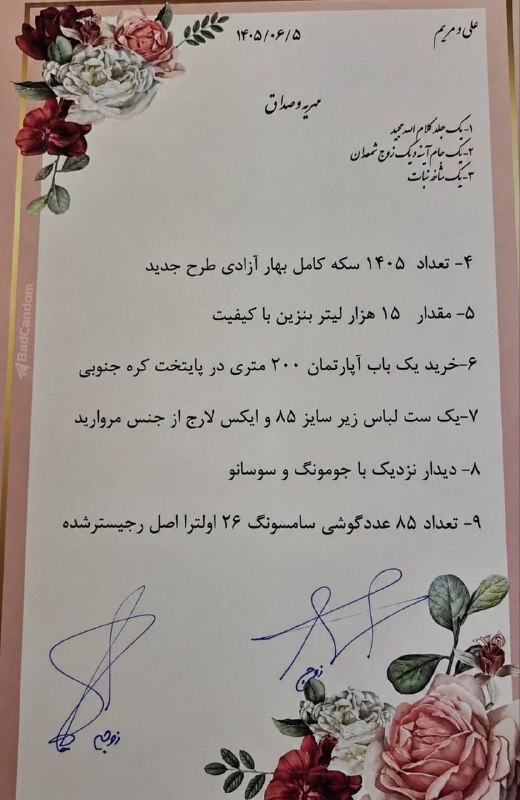 علی و مریم
۱۴۰۵/۰۶/۵
مهریه و صداق
۱- یک جلد کلام الله مجید
۲- یک جام آینه و یک زوج شمعدان
۳- یک شاخه نبات
۴- تعداد ۱۴۰۵ سکه کامل بهار آزادی طرح جدید
۵- مقدار ۱۵ هزار لیتر بنزین با کیفیت
۶-خرید یک باب آپارتمان ۲۰۰ متری در پایتخت کره جنوبی
۷-یک ست لباس زیر سایز ۸۵ و ایکس لارج از جنس مروارید
۸- دیدار نزدیک با جومونگ و سوسانو
۹- تعداد ۸۵ عددگوشی سامسونگ ۲۶ اولترا اصل رجیسترشده
زوج
زوجه
BadCandom